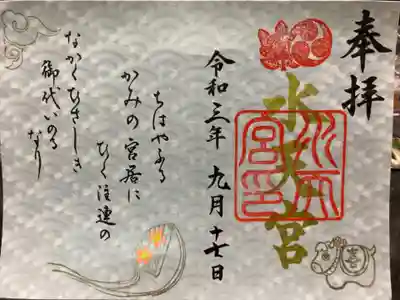 奉拝
水天宮
水天宮印
令和三年 九月 十七日
ちはやふる
かみの宮居に
ひく注連の
なかくひさしき
御代いのる
なり